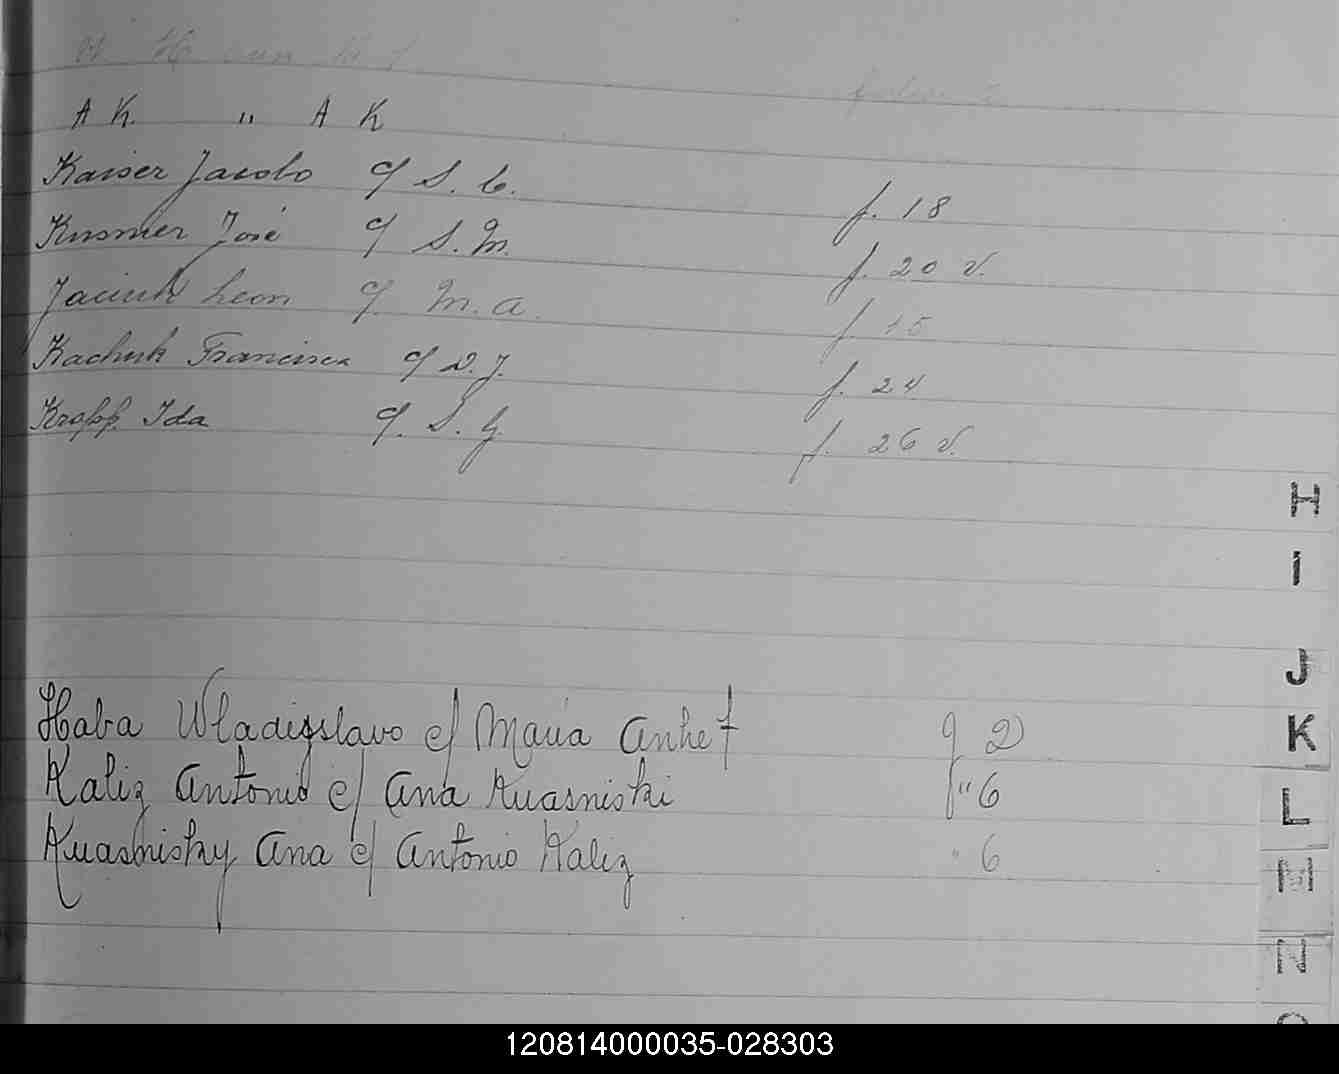 A K. " A K
Kaiser Jacobo c/ S. C. f. 18
Kusmer José c/ S. M. f. 20 v.
Leon c/ M. A. f 15
Kachuk Francisca c/ D. J. f. 24
Kropp. Ida c/. S. G. f. 26 v.
H
I
J
Haba Wladigslavo c/ Maria Anhet f 2
K
Kaliz Antonio c/ Ana Kuasniski f " 6
L
Kuasnisky Ana c/ Antonio Kaliz " 6
M
N
120814000035-028303